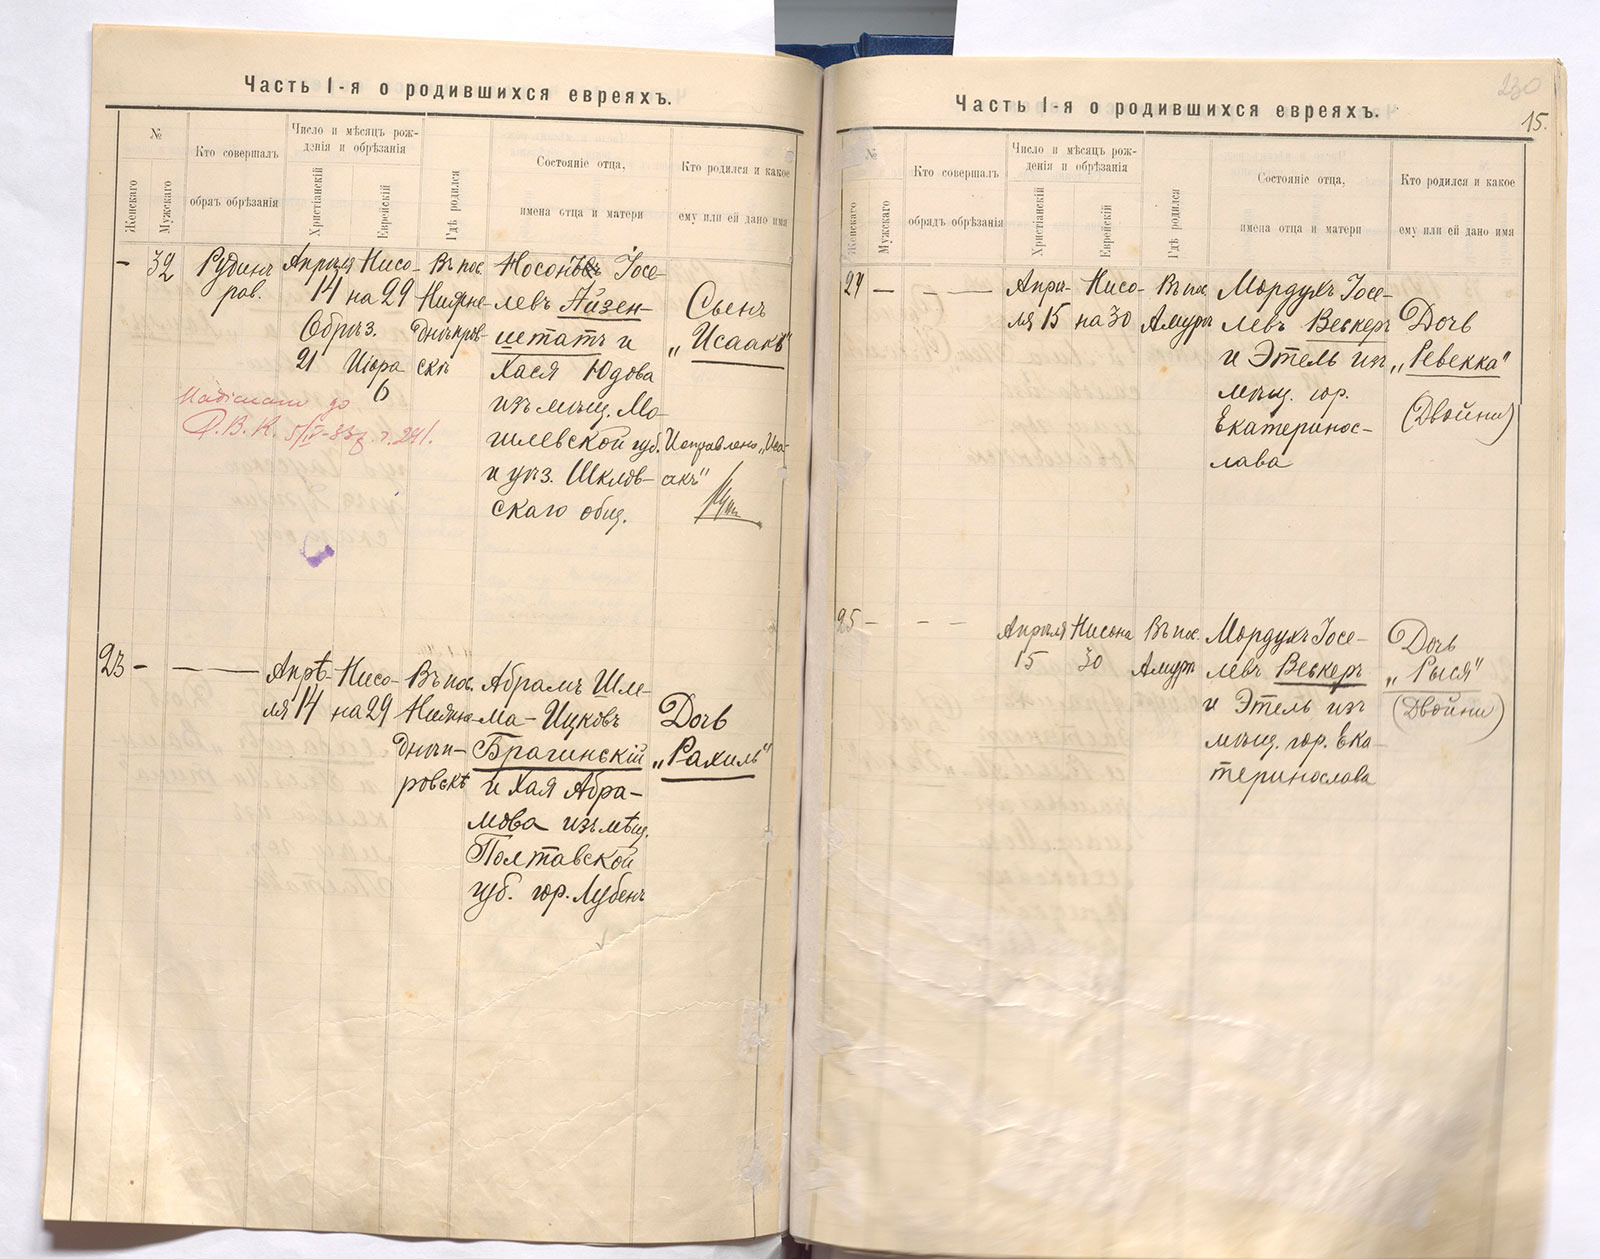 Часть I-я о родившихся евреяхъ.
№
Женскаго
Мужскаго
Кто совершалъ
обрядъ обрѣзанія
Число и мѣсяцъ рож-
денія и обрѣзанія
Христіанскій
Еврейскій
Гдѣ родился
Состояніе отца,
имена отца и матери
Кто родился и какое
ему или ей дано имя
–
32
Рубин
ров.
Апрѣля
14
Обрѣз.
21
Нисо-
на 29
Иіора
6
Въ пос.
Нижне-
днѣпров-
скѣ
Носонъ Іосе-
левъ Айзен-
штатъ и
Хася Юдова
изъ мѣщ. Мо-
гилевской губ.
и уѣз. Шклов-
скаго общ.
Сынъ
„Исаакъ"
Исправлено „Иса-
акъ"
Надіслано до
5/IV-33 р. г. 241.
23 –
– ——
Апрѣ-
ля 14
Нисо-
на 29
Въ пос.
Нижне-
днѣп-
ровскѣ
Абрамъ Шле-
ма-Ицковъ
Брагинскій
и Хая Абра-
мова изъ мѣщ.
Полтавской
губ. гор. Лубенъ
Дочь
„Рахиль"
230
15.
Часть I-я о родившихся евреяхъ.
№
Женскаго
Мужскаго
Кто совершалъ
обрядъ обрѣзанія
Число и мѣсяцъ рож-
денія и обрѣзанія
Христіанскій
Еврейскій
Гдѣ родился
Состояніе отца,
имена отца и матери
Кто родился и какое
ему или ей дано имя
24 –
– – —
Апрѣ-
ля 15
Нисо-
на 30
Въ пос.
Амурѣ
Мордухъ Іосе-
левъ Векеръ
и Этель изъ
мѣщ. гор.
Екатеринос-
лава
Дочь
„Ревекка"
(Двойни)
25 –
– —
Апрѣля
15
Нисона
30
Въ пос.
Амурѣ
Мордухъ Іосе-
левъ Векеръ
и Этель изъ
мѣщ. гор. Ека-
теринослава
Дочь
„Рыся"
(Двойни)